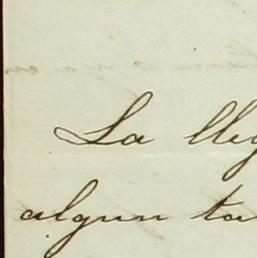 La lleg
algun ta